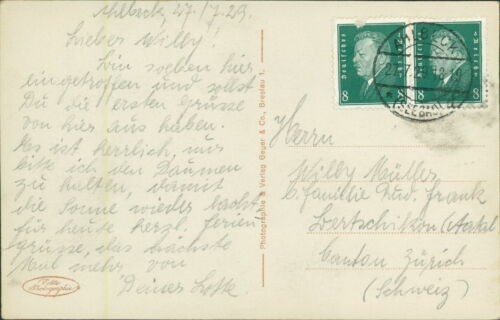 Ahlbeck, 27./7.29.
Lieber Willy!
Bin soeben hier
eingetroffen und sollst
Du die ersten Grüsse
von hier aus haben.
Es ist herrlich, nur
bitte ich den Daumen
zu halten, damit
die Sonne wieder lacht
für heute herzl. Ferien
grüsse, das nächste
Mal mehr von
Deiner Lotte.
Echte Photographie
Photographie & Verlag Geyer & Co., Breslau 1.
Deutsches Reich
8
8
AHLBECK
SEEBAD
Herrn
Willy Müller
b. Familie Rud. Frank
Bertschikon (Aatal
Canton Zürich
(Schweiz)